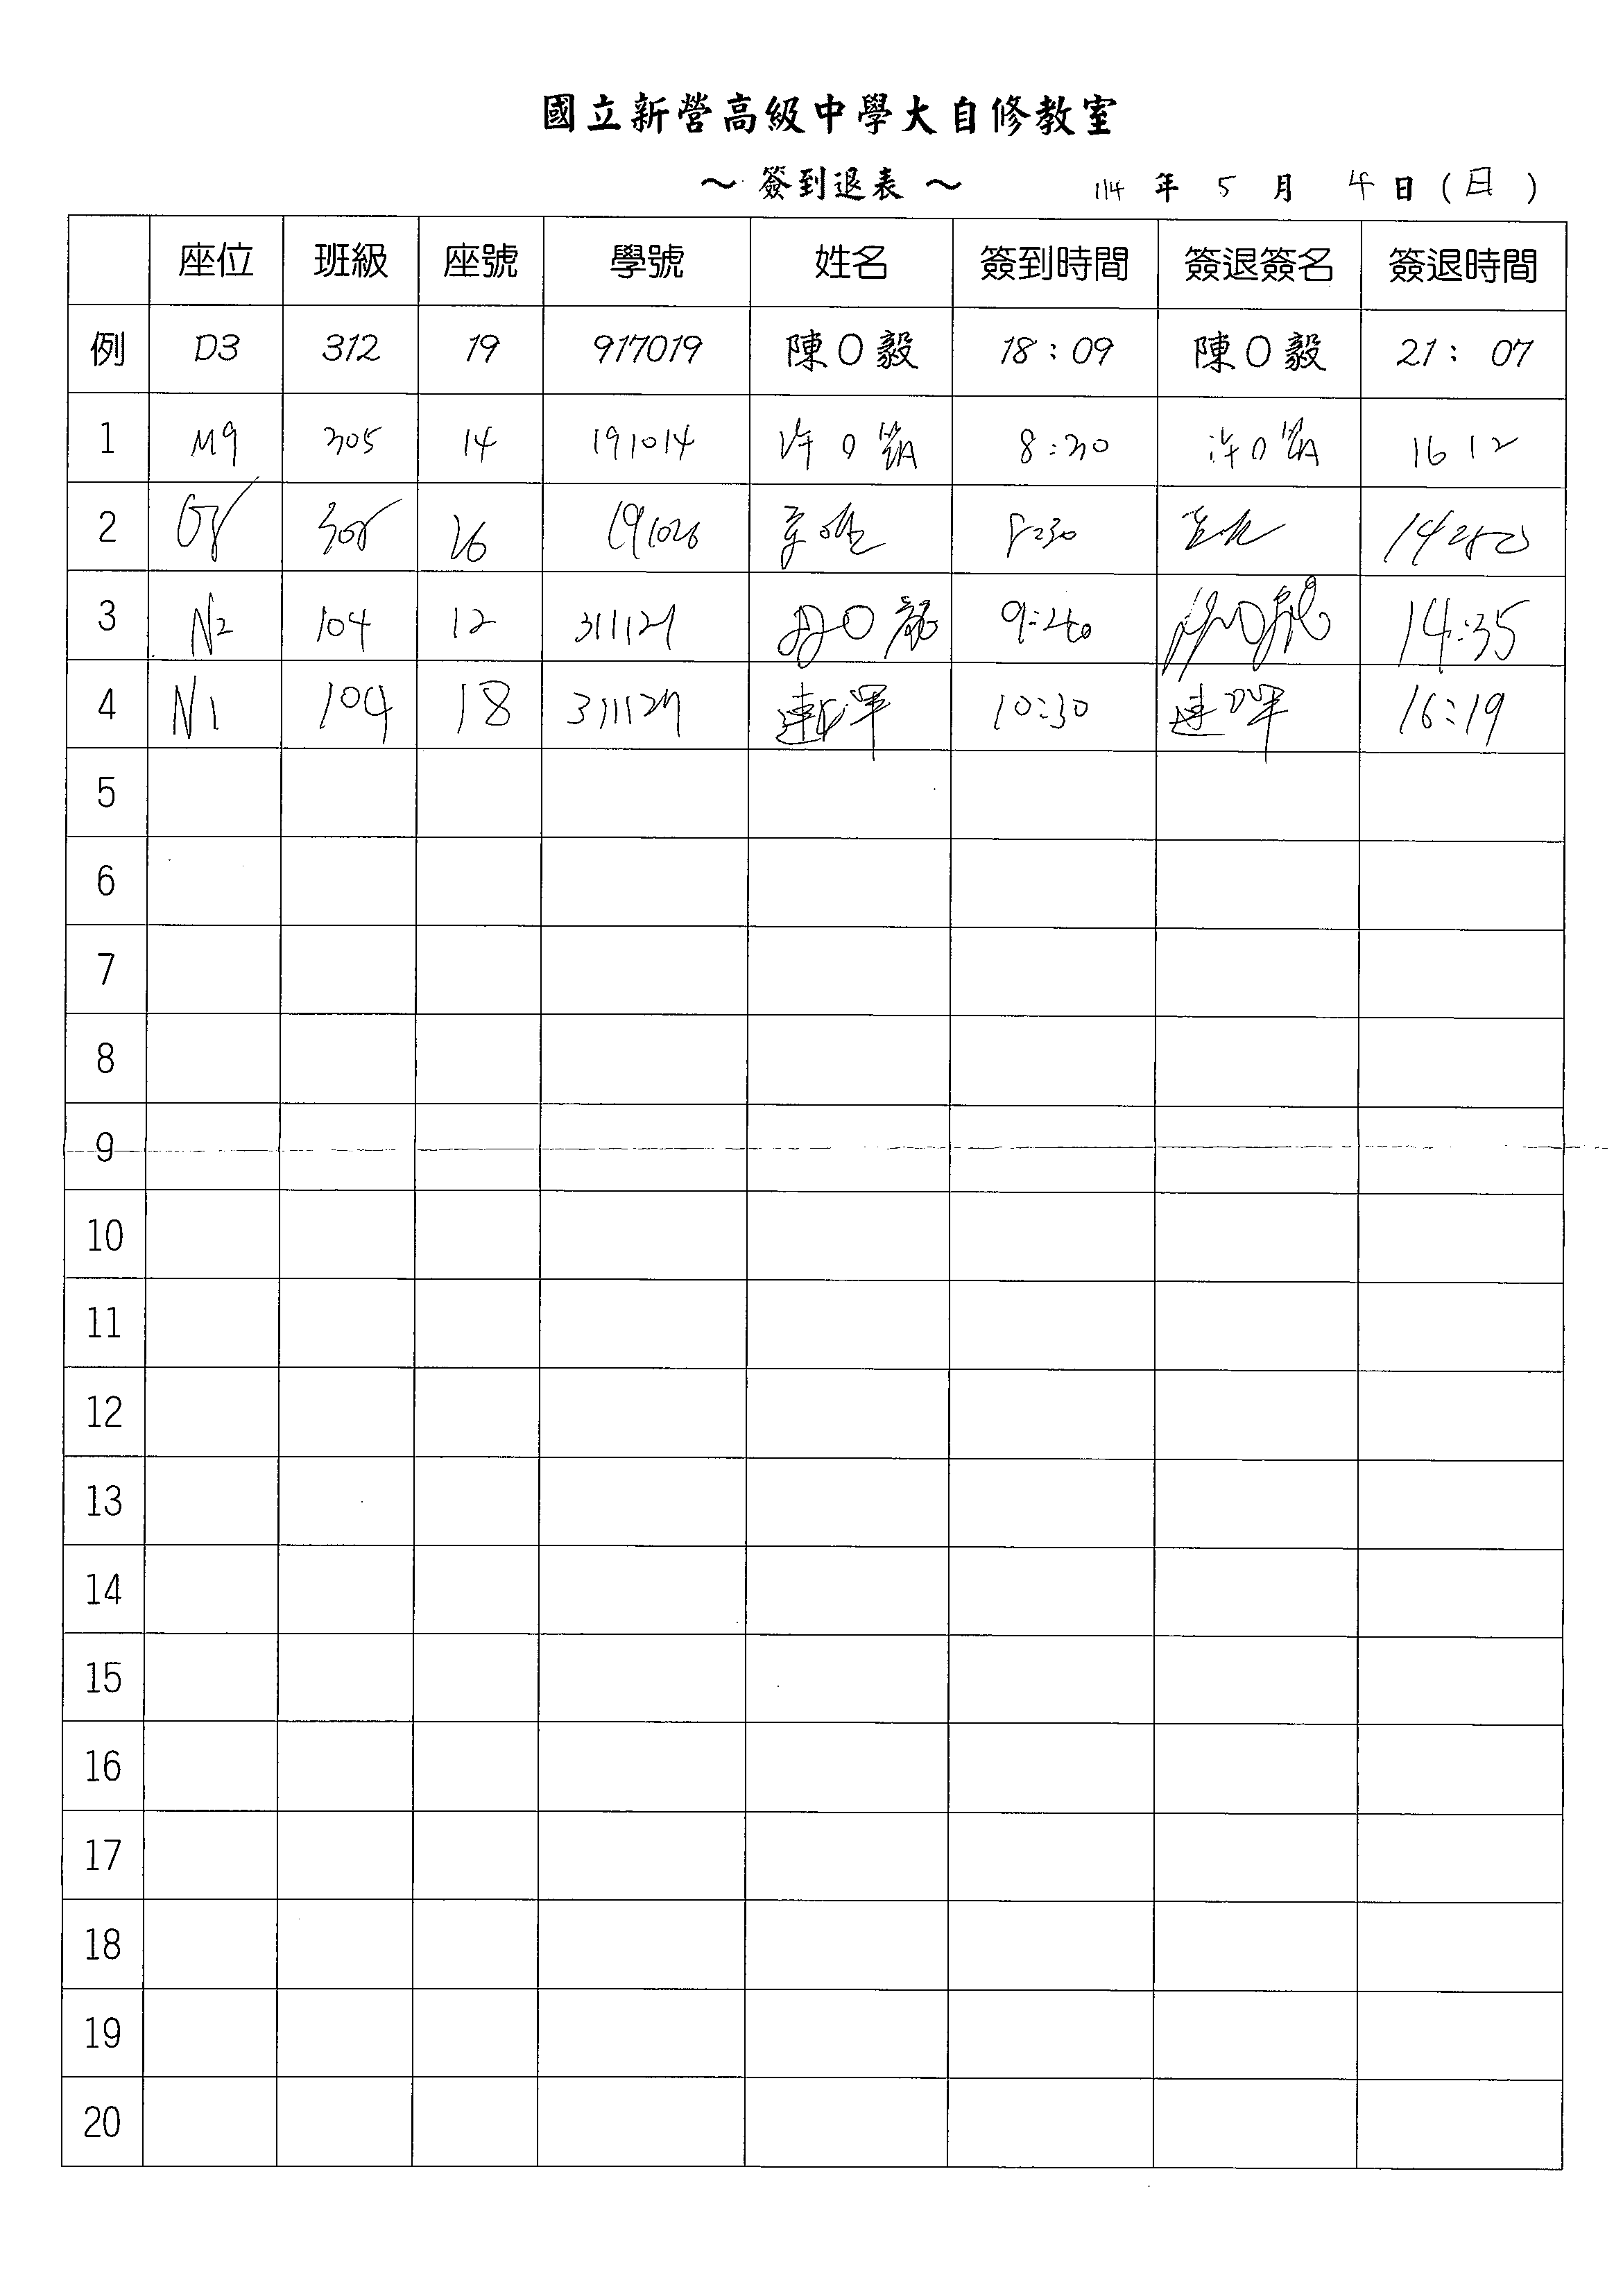 國立新營高級中學大自修教室
～簽到退表～ 114 年 5 月 4 日 (日)
座位 班級 座號 學號 姓名 簽到時間 簽退簽名 簽退時間
例 D3 312 19 917019 陳O毅 18:09 陳O毅 21:07
1 M9 305 14 191014 许O 8:30 许O 16 12
2 308 26 191026 8:30
3 N2 104 12 311121 O 9:40 O 14:35
4 N1 104 18 311127 連 10:30 連 16:19
5
6
7
8
9
10
11
12
13
14
15
16
17
18
19
20